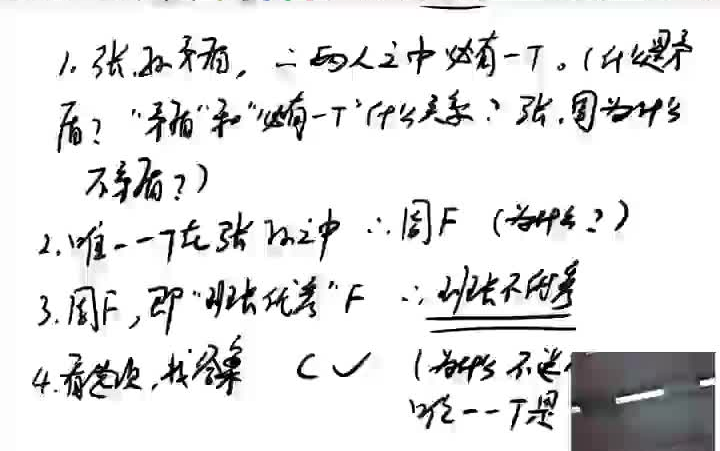 1. 张、孙矛盾, ∴两人之中必有一T。(什么是矛
盾? "矛盾"和"必有一T"什么关系? 张、周为什么
不矛盾?)
2. 唯一一T在张孙之中 ∴周F (为什么?)
3. 周F, 即"班长优秀"F ∴班长不优秀
4. 看选项, 找答案 C✓ (为什么不选
唯一一T是